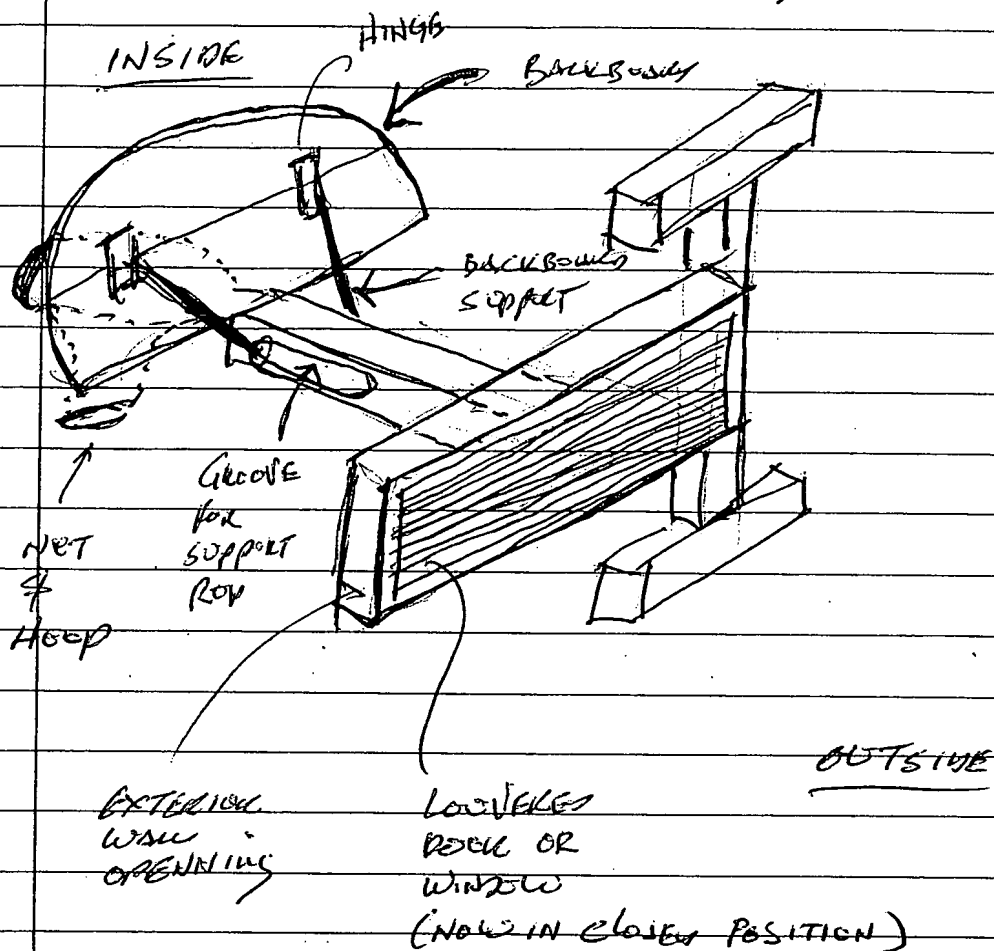 INSIDE
HINGE
BACKBOARD
BACKBOARD
SUPPORT
GROOVE
FOR
SUPPORT
ROD
NET
&
HOOP
OUTSIDE
EXTERIOR
WALL
OPENNING
LOUVERED
DOOR OR
WINDOW
(NOW IN CLOSED POSITION)